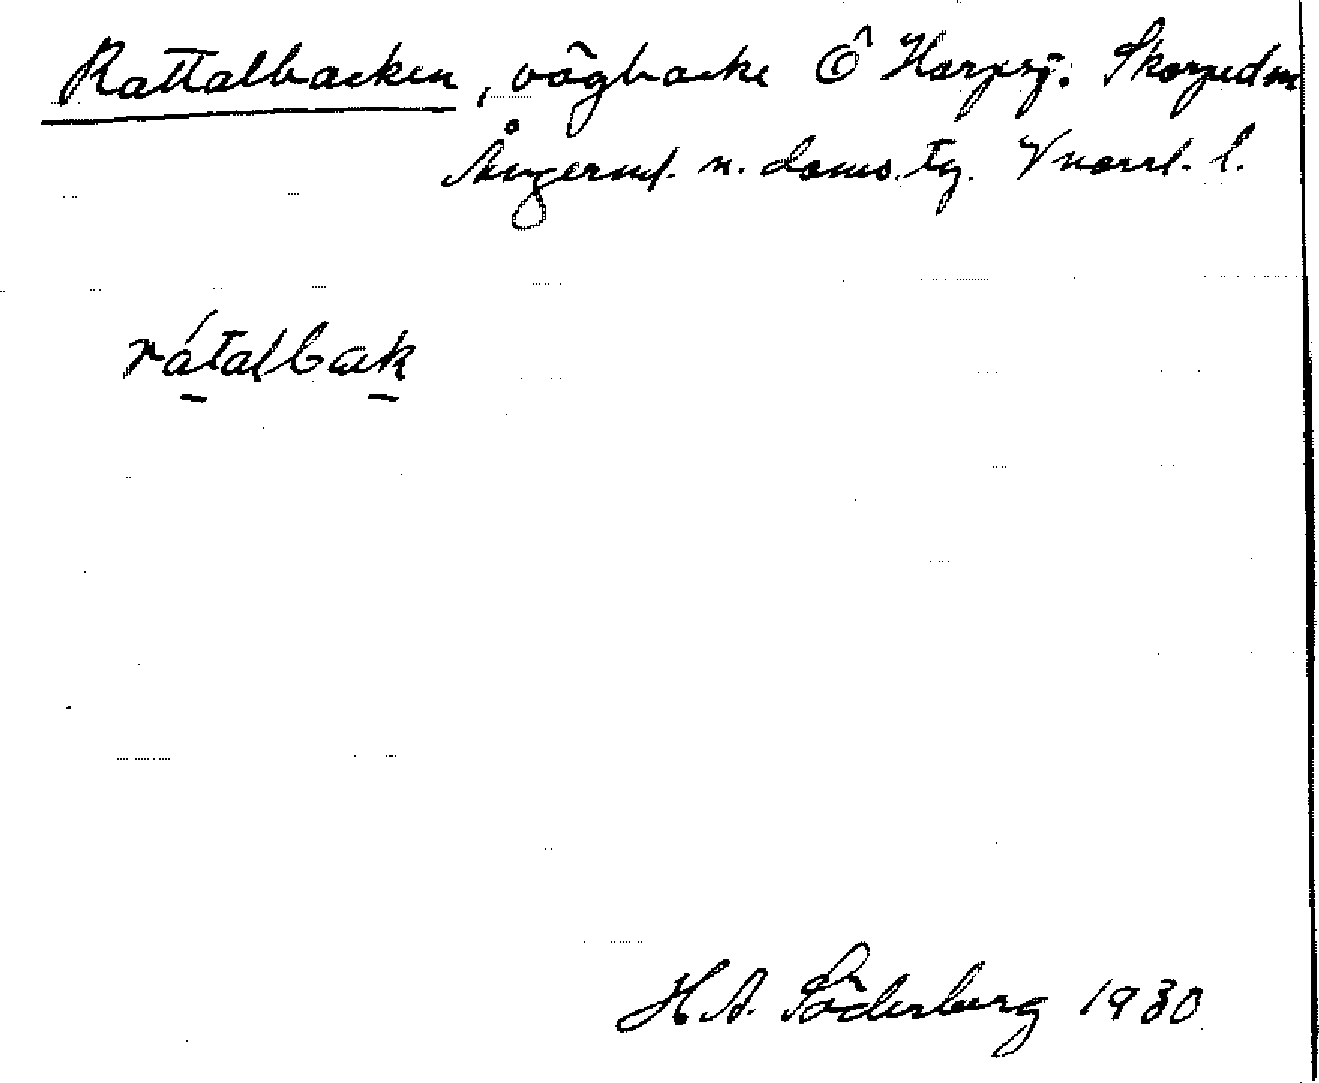 Rattalbacken, vägbacke Ö Harpsj. Skorpedm
Ångerml. n. doms. tg. Vnorrl. l.
rátalbak
H A. Söderberg 1930